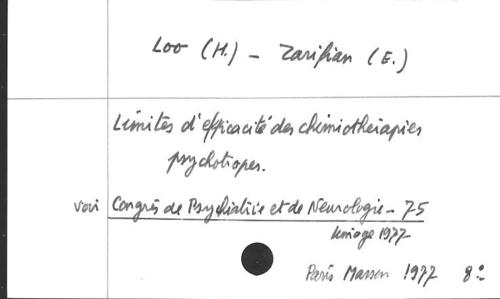 Loo (H.) - Zarifian (E.)
Limites d'efficacité des chimiothérapies
psychotropes.
voir Congrès de Psychiatrie et de Neurologie - 75
limoge 1977
Paris Masson 1977 8°